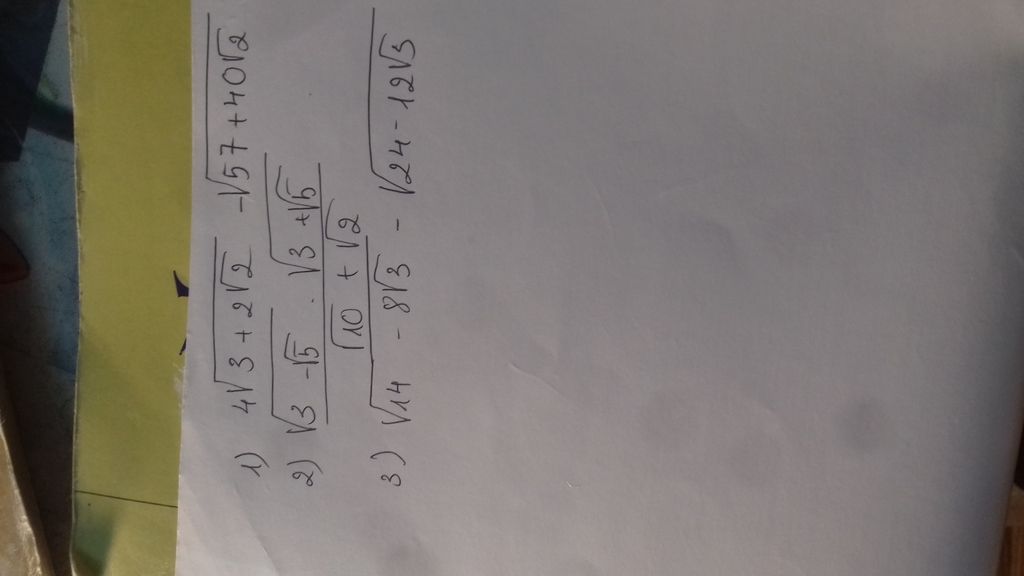 1) 4√(3 + 2√2) - √(57 + 40√2)
2) (√(3 - √5) · √(3 + √5)) / (√10 + √2)
3) √(14 - 8√3) - √(24 - 12√3)